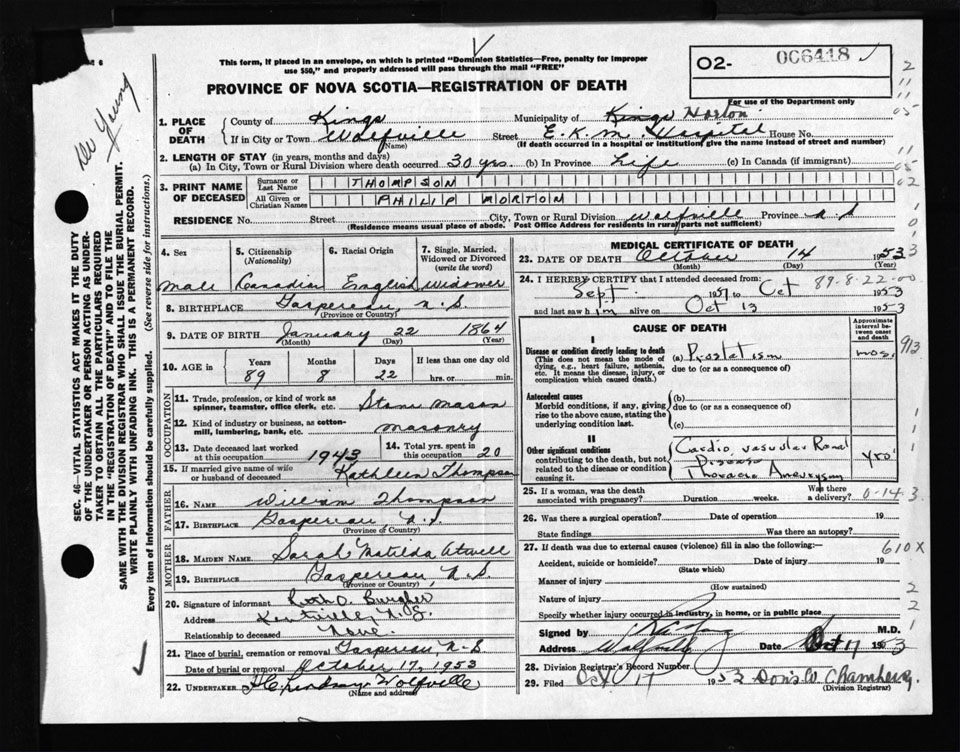 This form, if placed in an envelope, on which is printed "Dominion Statistics—Free, penalty for improper
use $50," and properly addressed will pass through the mail "FREE"
PROVINCE OF NOVA SCOTIA—REGISTRATION OF DEATH
02- 006418
For use of the Department only
Dr Young
SEC. 46—VITAL STATISTICS ACT MAKES IT THE DUTY
OF THE UNDERTAKER OR PERSON ACTING AS UNDER-
TAKER TO OBTAIN ALL THE PARTICULARS REQUIRED
IN THE "REGISTRATION OF DEATH" AND TO FILE THE
SAME WITH THE DIVISION REGISTRAR WHO SHALL ISSUE THE BURIAL PERMIT.
WRITE PLAINLY WITH UNFADING INK. THIS IS A PERMANENT RECORD.
Every item of information should be carefully supplied. (See reverse side for instructions.)
1. PLACE OF DEATH County of Kings Municipality of Kings Horton
If in City or Town Wolfville Street E. K. M. Hospital House No.
(Name) (If death occurred in a hospital or institution, give the name instead of street and number)
2. LENGTH OF STAY (in years, months and days)
(a) In City, Town or Rural Division where death occurred 30 yrs. (b) In Province Life (c) In Canada (if immigrant)
3. PRINT NAME OF DECEASED Surname or Last Name THOMPSON
All Given or Christian Names PHILIP MORTON
RESIDENCE No. Street City, Town or Rural Division Wolfville Province N.S
(Residence means usual place of abode. Post Office Address for residents in rural parts not sufficient)
4. Sex 5. Citizenship (Nationality) 6. Racial Origin 7. Single, Married, Widowed or Divorced (write the word)
Male Canadian English Widower
8. BIRTHPLACE Gaspereau N.S.
(Province or Country)
9. DATE OF BIRTH January 22 1864
(Month) (Day) (Year)
10. AGE in Years Months Days If less than one day old
89 8 22 hrs. or min.
OCCUPATION
11. Trade, profession, or kind of work as spinner, teamster, office clerk, etc. Stone Mason
12. Kind of industry or business, as cotton-mill, lumbering, bank, etc. Masonry
13. Date deceased last worked at this occupation 1943 14. Total yrs. spent in this occupation 20
15. If married give name of wife or husband of deceased Kathleen Thompson
FATHER
16. Name William Thompson
17. Birthplace Gaspereau N.S.
(Province of Country)
MOTHER
18. Maiden Name Sarah Matilda Atwell
19. Birthplace Gaspereau, N.S.
(Province or Country)
20. Signature of informant Ruth O. Burgher
Address Kentville, N.S.
Relationship to deceased None.
21. Place of burial, cremation or removal Gaspereau, N-S
Date of burial or removal October 17, 1953
22. Undertaker Lindsay Wolfville
(Name and address)
MEDICAL CERTIFICATE OF DEATH
23. DATE OF DEATH October 14 1953
(Month) (Day) (Year)
24. I HEREBY CERTIFY that I attended deceased from: 89-8-22-00
Sept. to Oct 1953
and last saw him alive on Oct 13 1953
CAUSE OF DEATH
Approximate interval between onset and death
I
Disease or condition directly leading to death (a) Prostatism mos. 913
(This does not mean the mode of dying, e.g., heart failure, asthenia, etc. It means the disease, injury, or complication which caused death.) due to (or as a consequence of)
Antecedent causes (b)
Morbid conditions, if any, giving rise to the above cause, stating the underlying condition last. due to (or as a consequence of)
(c)
II
Other significant conditions contributing to the death, but not related to the disease or condition causing it.
Cardio vascular Renal
Disease
Thoracic Aneurysm yrs
25. If a woman, was the death associated with pregnancy? Duration weeks. Was there a delivery? 0-14-3
26. Was there a surgical operation? Date of operation 19
State findings Was there an autopsy?
27. If death was due to external causes (violence) fill in also the following:— 610X
Accident, suicide or homicide? (State which)
Manner of injury (How sustained)
Nature of injury
Specify whether injury occurred in industry, in home, or in public place
Signed by M.D.
Address Wolfville Date Oct 17 1953
28. Division Registrar's Record Number
29. Filed Oct 17 1953 Doris W. Chambers.
(Division Registrar)